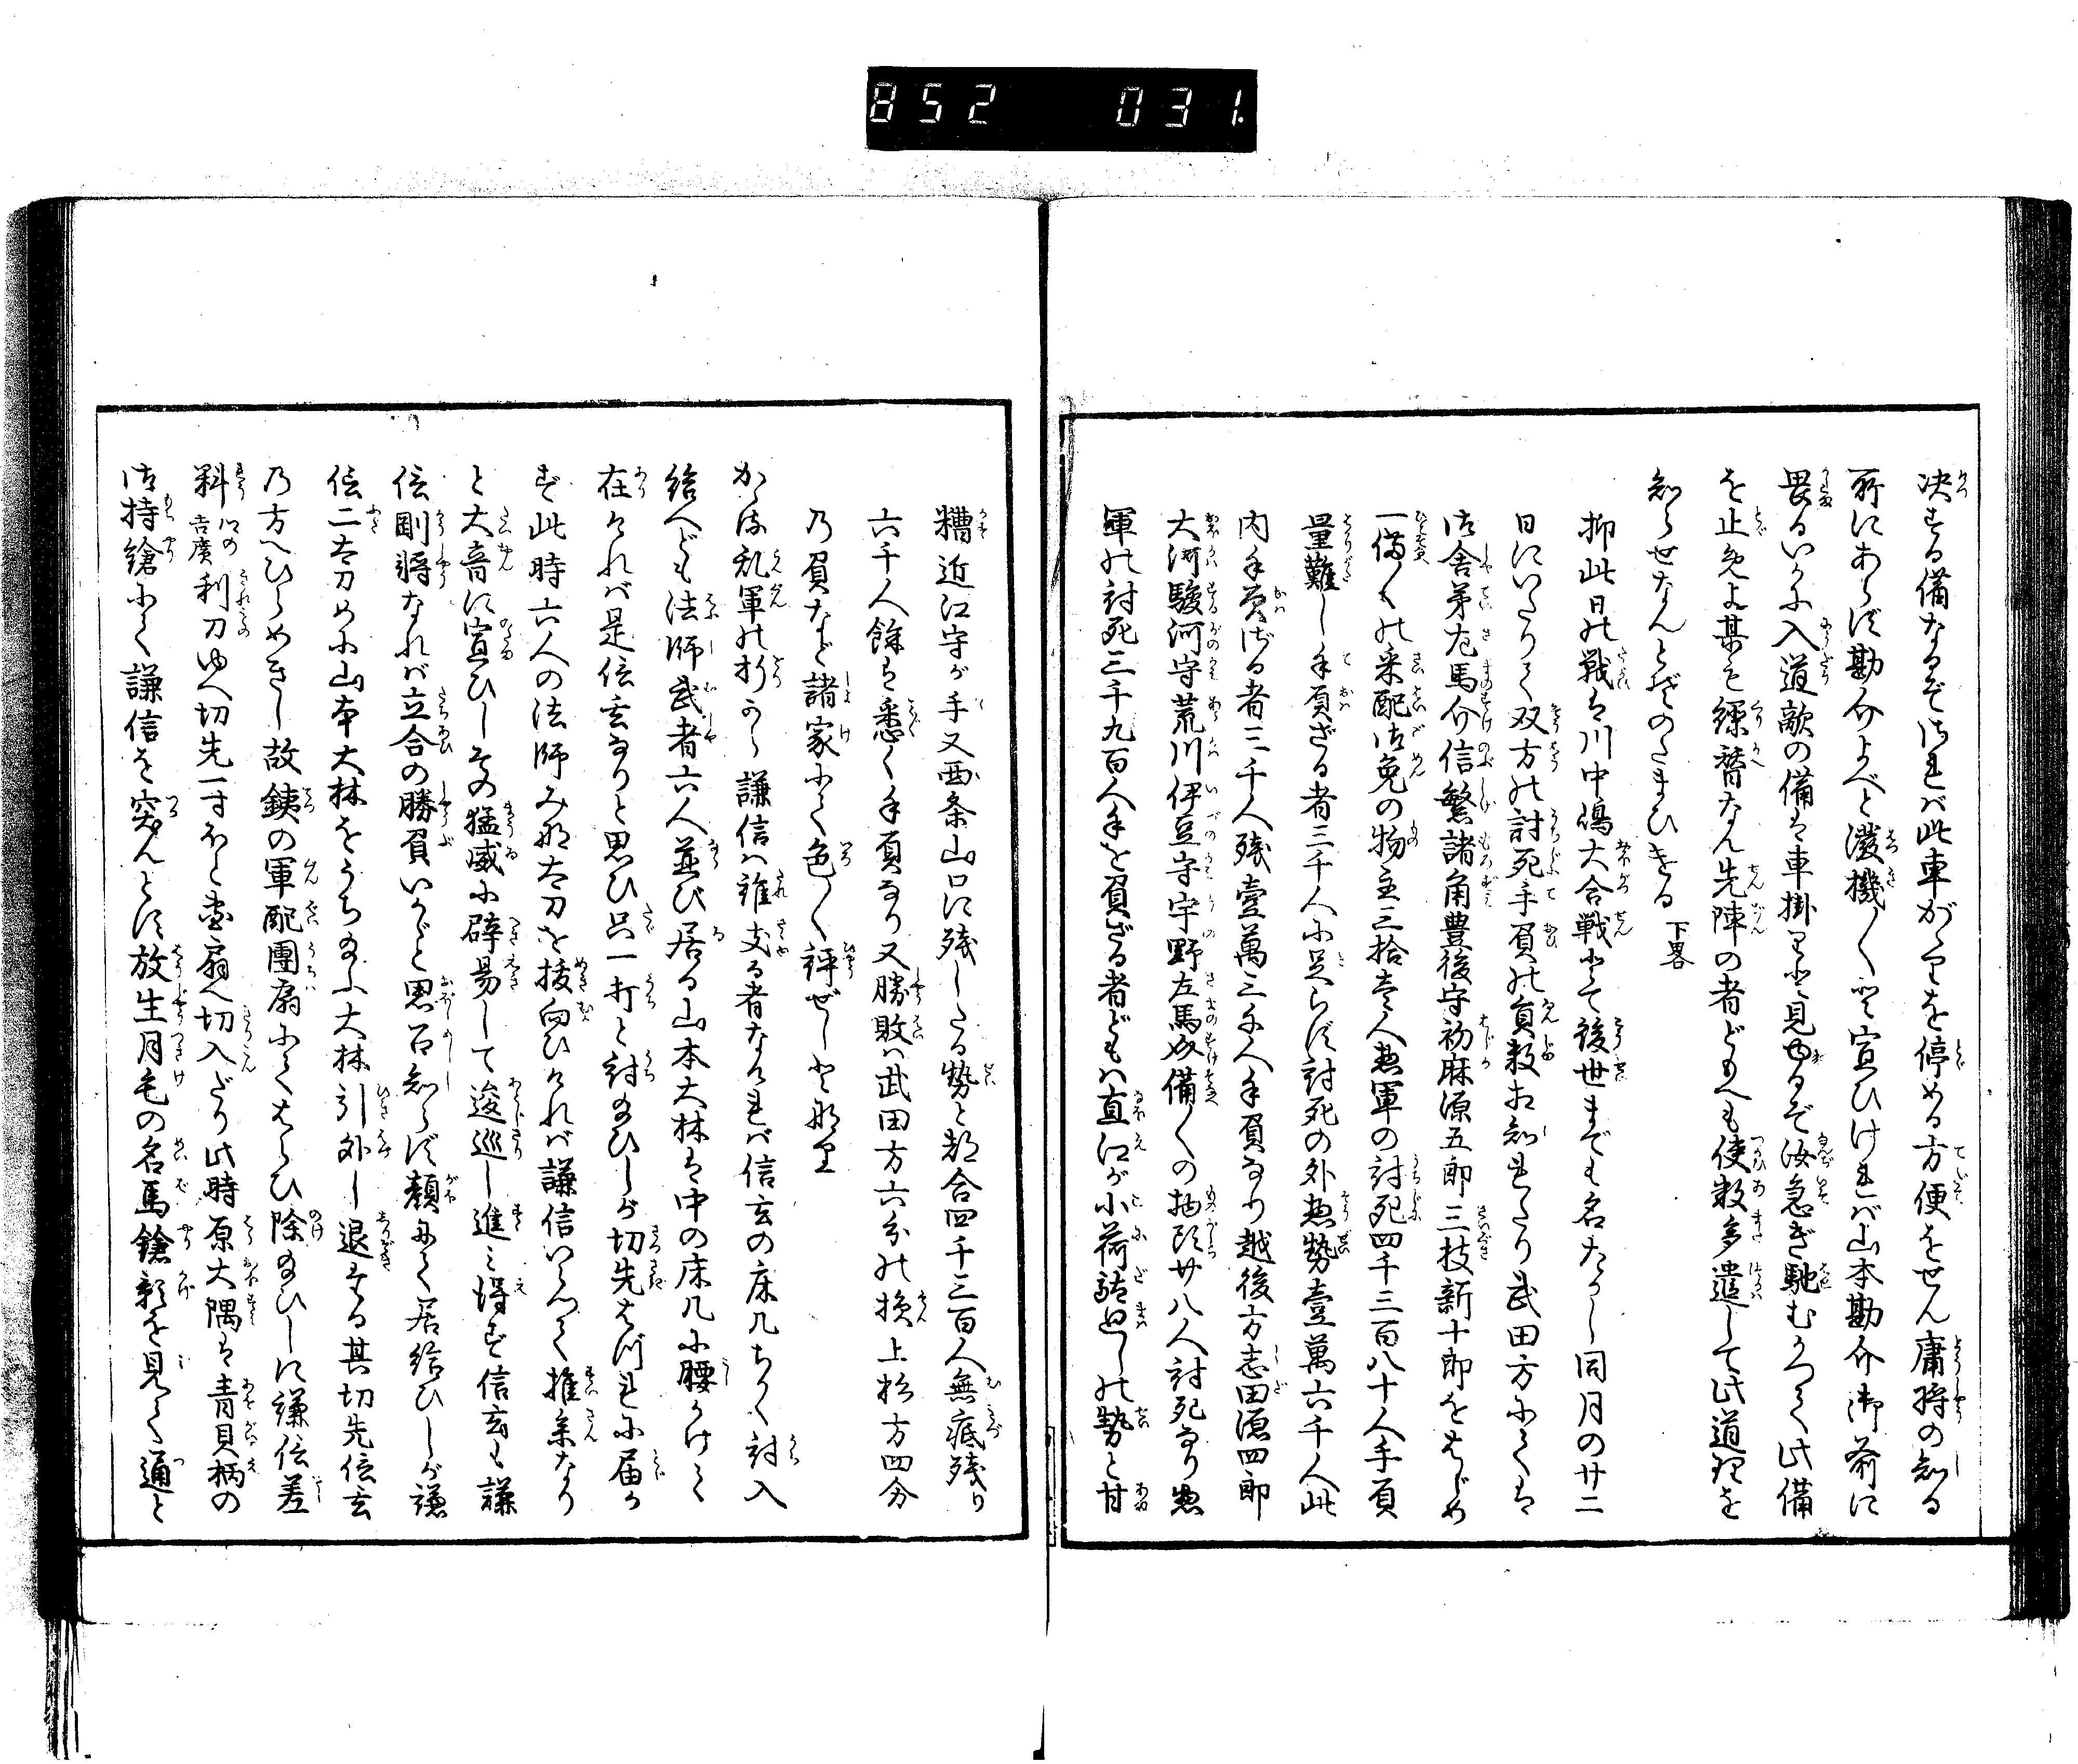 852 031.
決する備なるぞされば此車がゝりを停める方便をせん庸将の知る
所にあらず勘介よべと溌機〳〵と宣ひければ山本勘介御前に
畏るいかに入道敵の備は車掛りと見ゆるぞ汝急ぎ馳むかつて此備
を止めよ某も繰替なん先陣の者どもへも使数多遣して此道理を
知らせなんとぞのたまひける 下畧
抑此日の戦は川中嶋大合戦とて後世までも名たかし同月の廿二
日にいたりて双方の討死手負の員数相知れたり武田方にては
御舎弟左馬介信繁諸角豊後守初麻源五郎三枝新十郎をはじめ
一備〳〵の采配御免の物主三拾壱人惣軍の討死四千三百八十人手負
量難し手負ざる者三千人に足らず討死の外惣勢壹萬六千人此
内手負ざる者三千人残壹萬三千人手負なり越後方志田源四郎
大河駿河守荒川伊豆守宇野左馬介備〳〵の物頭廿八人討死なり惣
軍の討死三千九百人手を負ざる者どもは直江が小荷駄の勢と甘
糟近江守が手又西条山口に残したる勢と都合四千三百人無疵残り
六千人餘は悉く手負なり又勝敗は武田方六分の損上杉方四分
乃負など諸家にて色〳〵評ぜしとなり
かゝる乱軍の折から謙信は誰支る者なければ信玄の床几ちかく討入
給へども法師武者六人並び居る山本大林は中の床几に腰かけて
在ければ是信玄なりと思ひ只一打と討給ひしが切先はづれに届か
ず此時六人の法師みな太刀を抜向ひければ謙信いかつて推参なり
と大音に宣ひしその猛威に辟易して逡巡し進み得ず信玄も謙
信剛将なれば立合の勝負いかゞと思召知らず顔にて居給ひしが謙
信二太刀めに山本大林をうち給ふ大林引外し退きたる其切先信玄
乃方へひらめきし故銕の軍配團扇にてはらひ除給ひしに謙信差
料 のさだ吉廣 利刀ゆへ切先一寸ほど 扇へ切入たり此時原大隅は青貝柄の
御持鎗にて謙信を突んとす放生月毛の名馬鎗影を見て通と